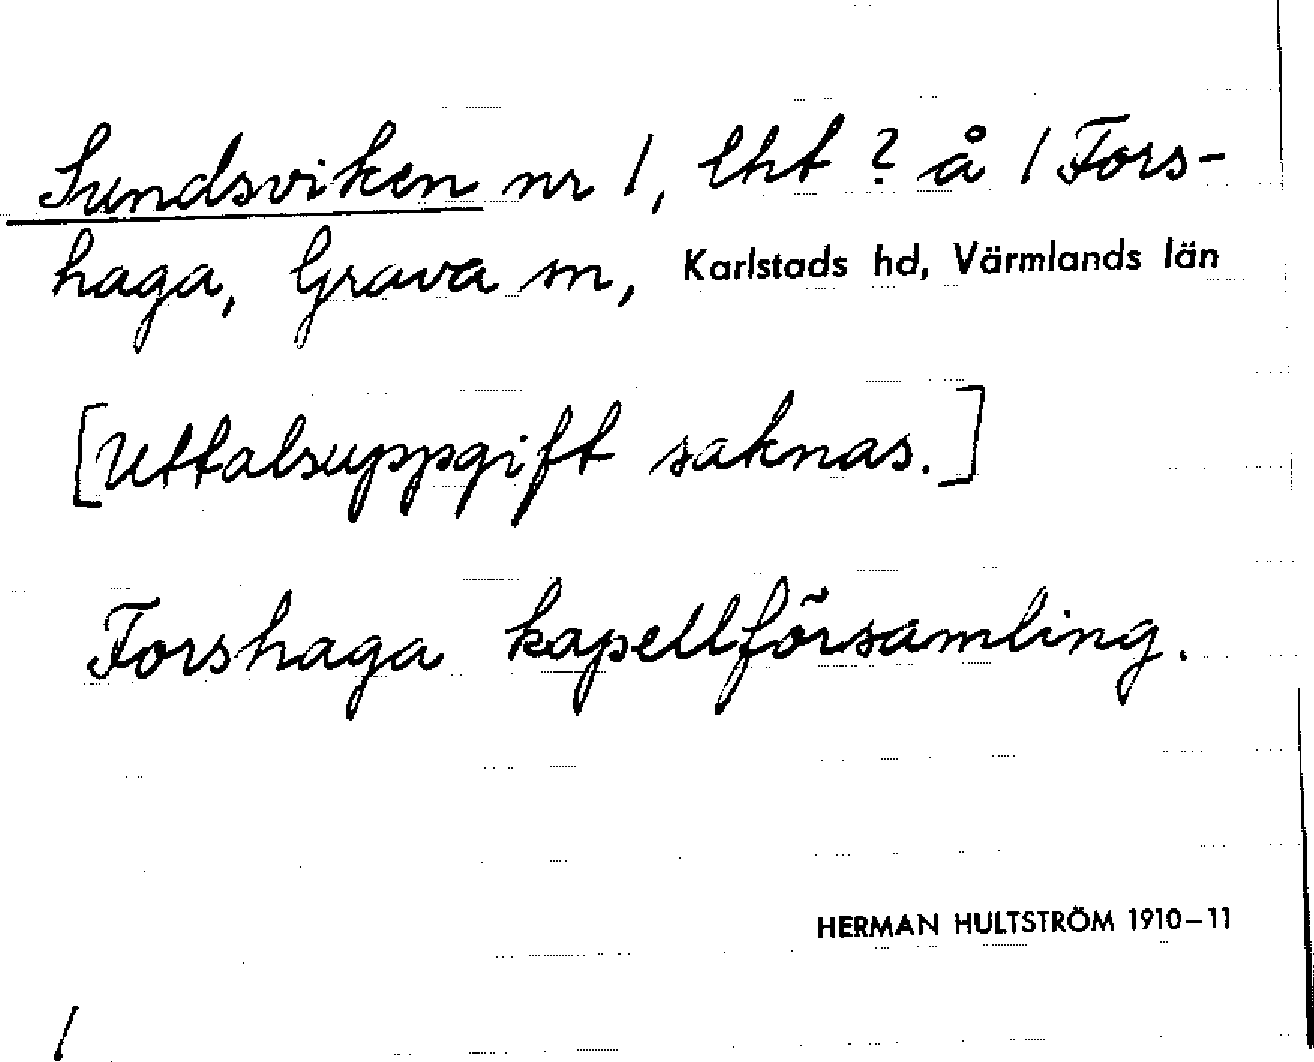 Sundsviken nr 1, lht ? å 1 Fors-
haga, Grava sn, Karlstads hd, Värmlands län
[Uttalsuppgift saknas.]
Forshaga kapellförsamling.
HERMAN HULTSTRÖM 1910–11
1